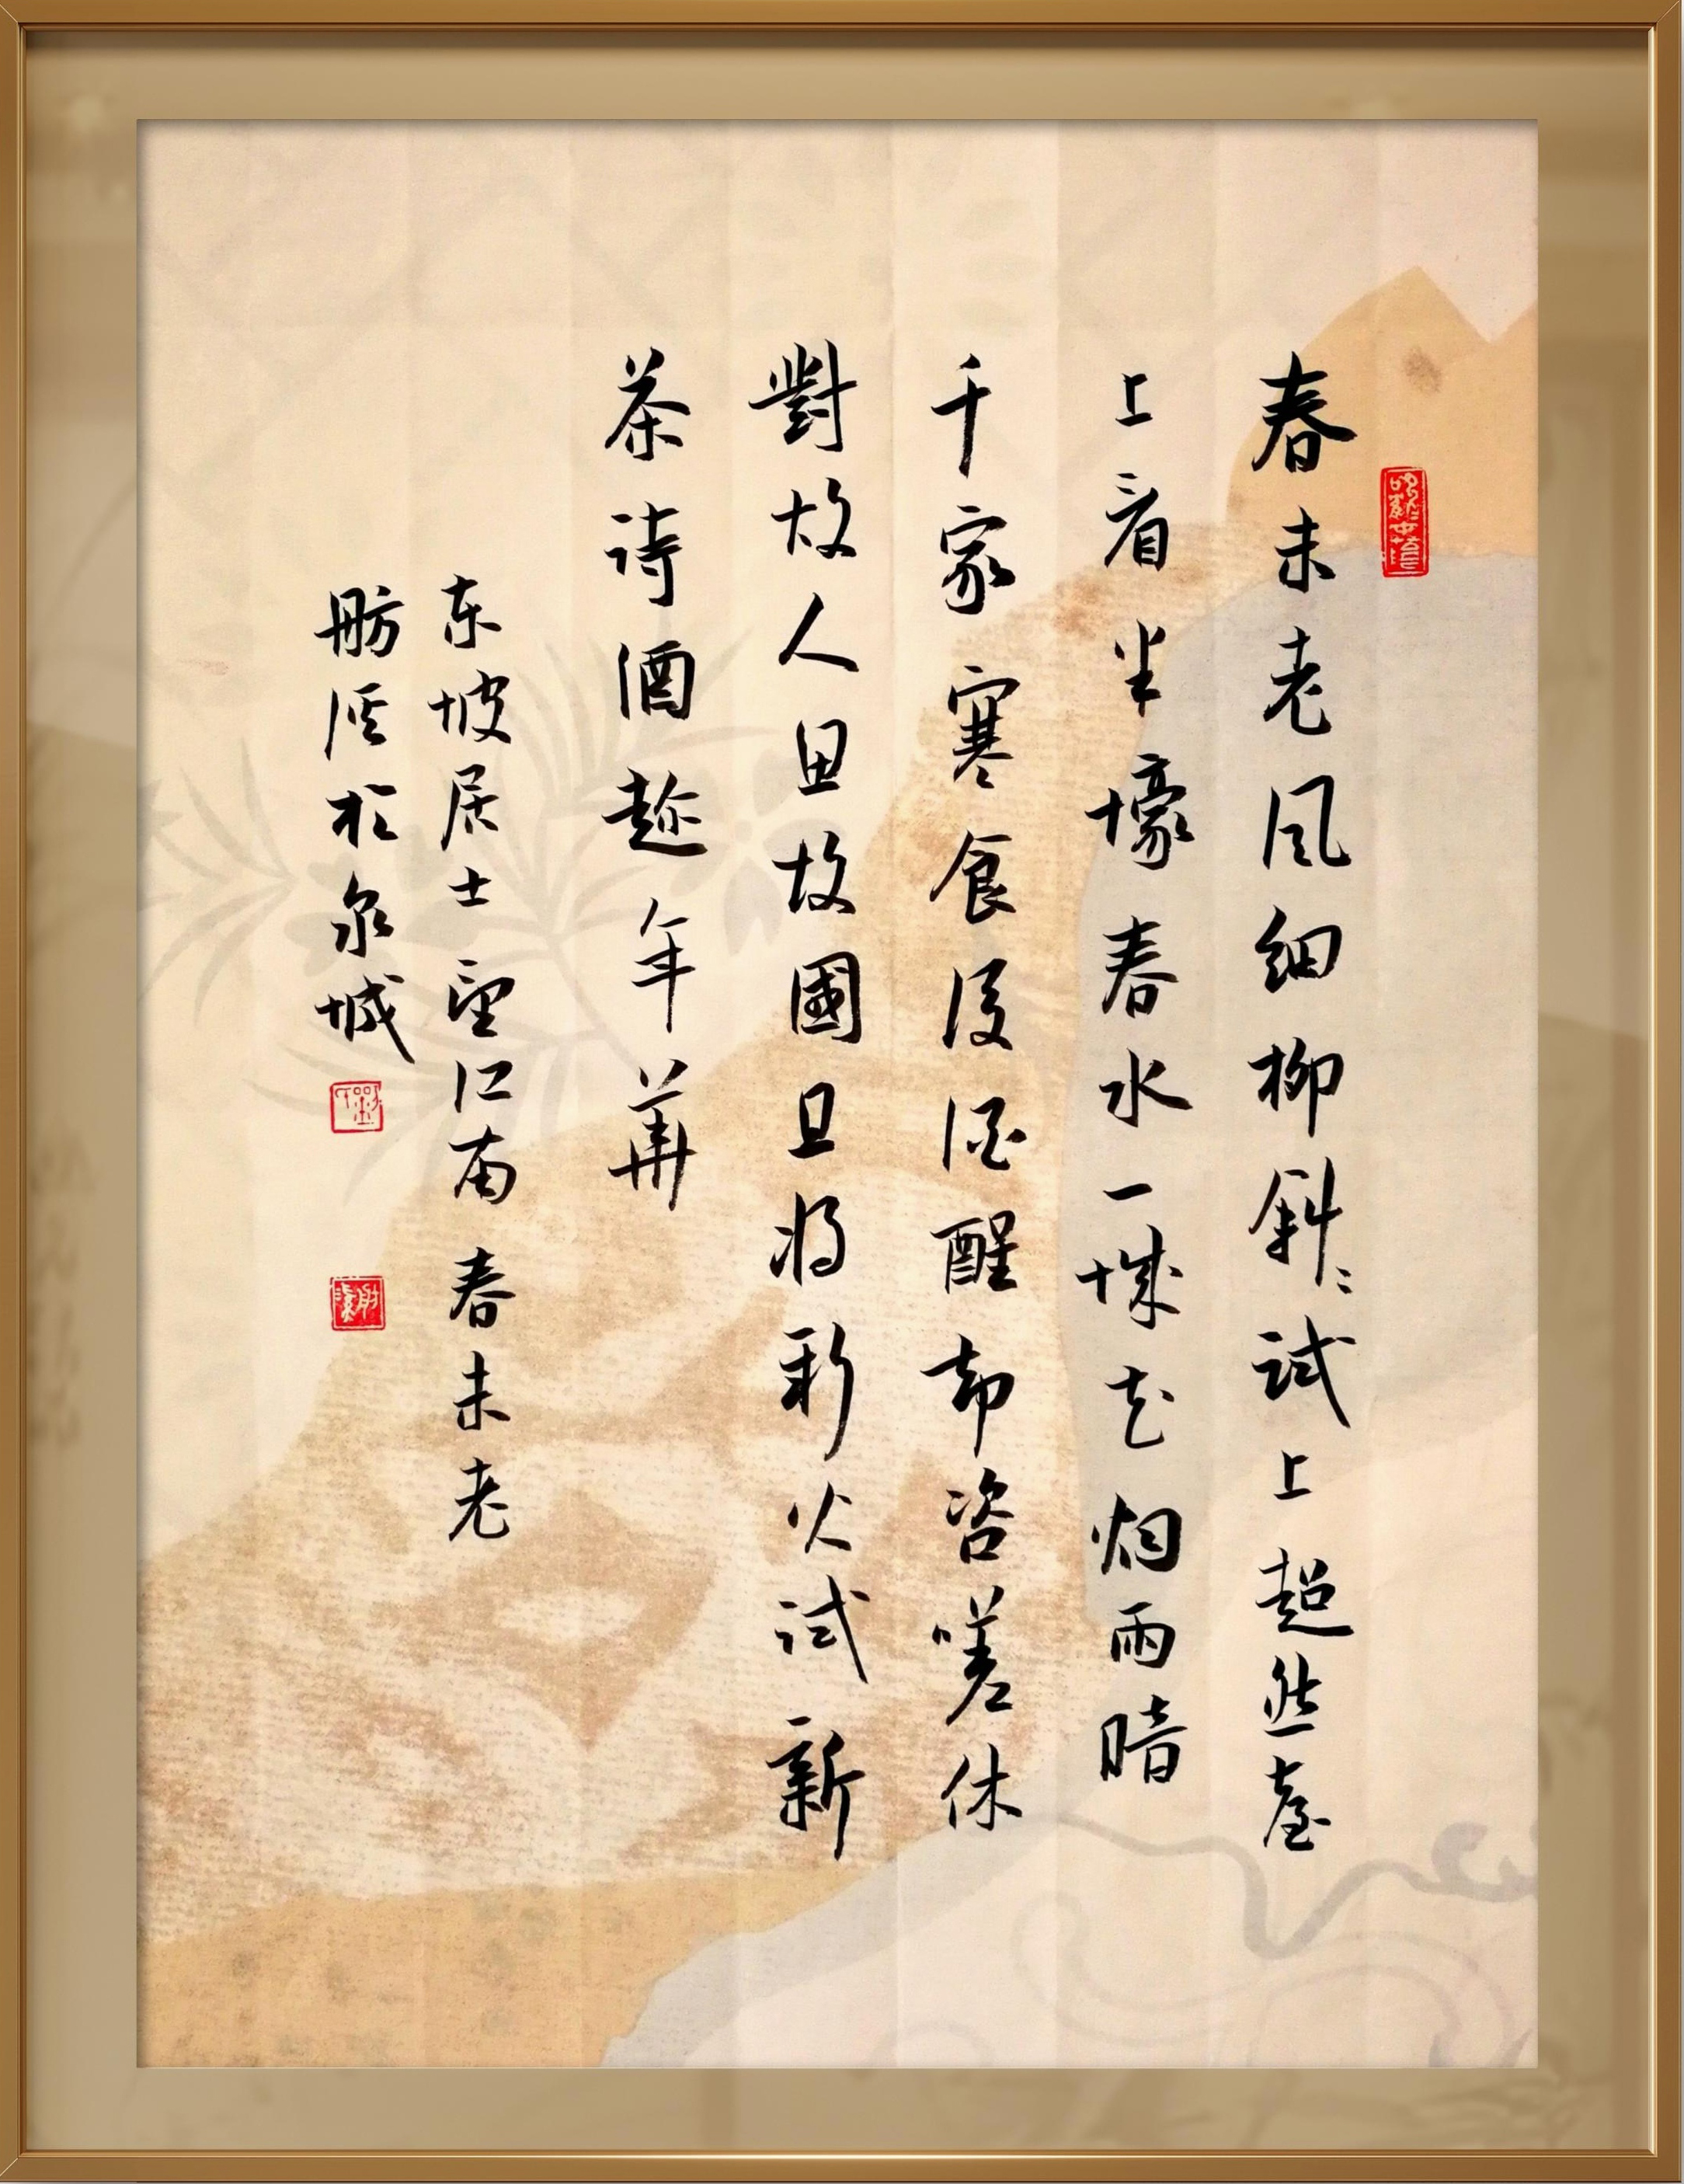 春未老风细柳斜斜試上超然臺
上看半壕春水一城花烟雨暗
千家寒食後酒醒却咨嗟休
對故人思故國且将新火試新
茶诗酒趁年華
东坡居士望江南春未老
舫於泉城